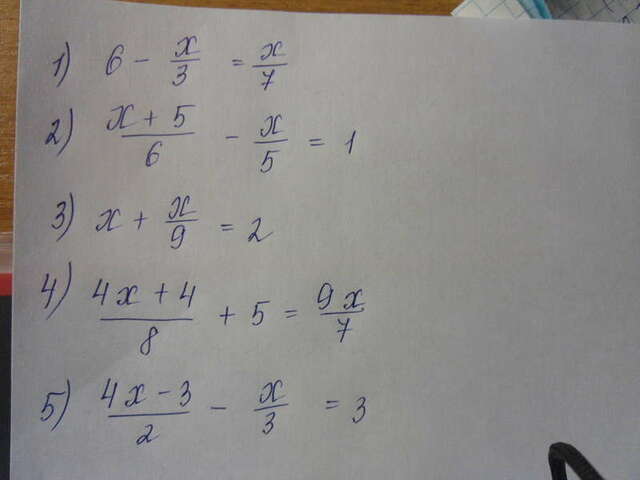 1) 6 - x/3 = x/7
2) (x + 5)/6 - x/5 = 1
3) x + x/9 = 2
4) (4x + 4)/8 + 5 = 9x/7
5) (4x - 3)/2 - x/3 = 3